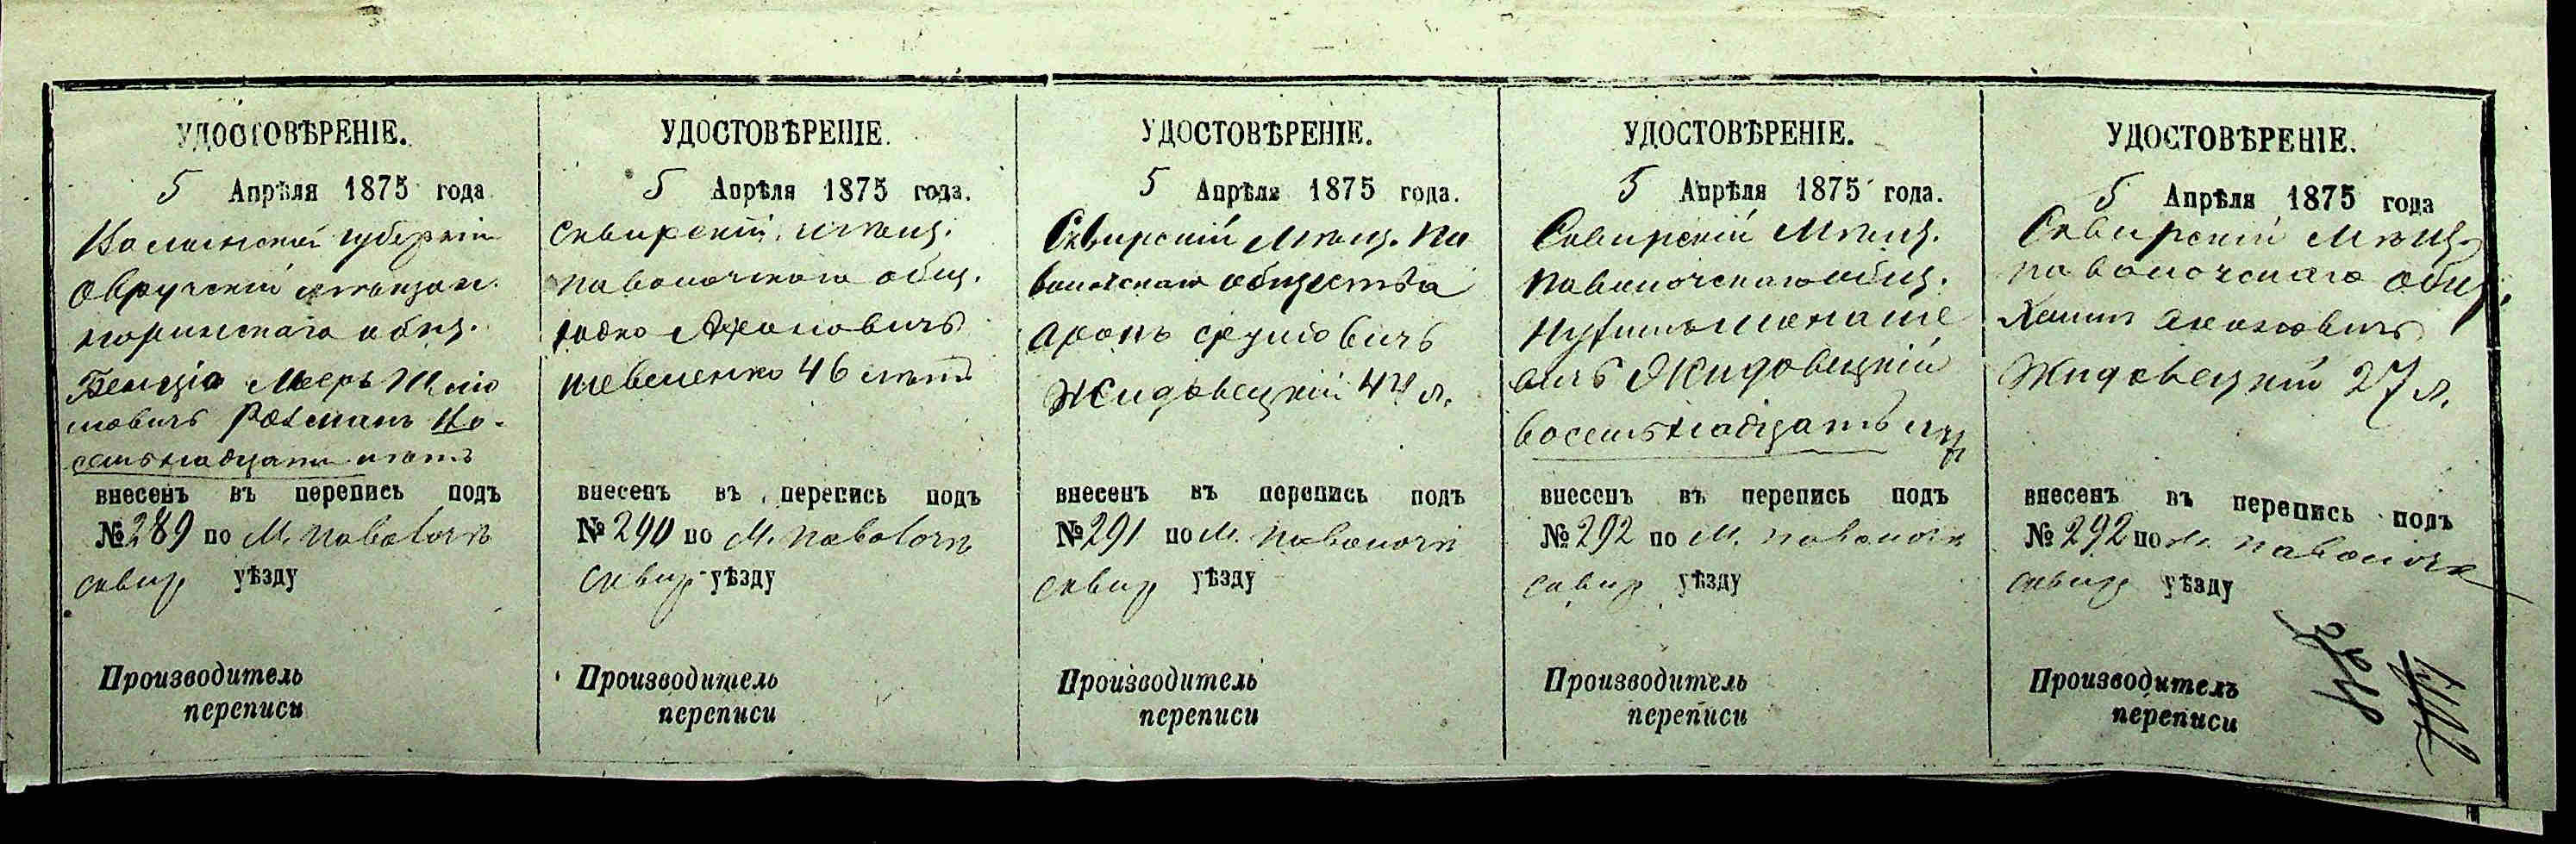 УДОСТОВѢРЕНІЕ.
5 Апрѣля 1875 года
Волынской губерніи
Овручскій мѣщан.
общ.
Мееръ Шлио
мовичъ Ротманъ Во-
семьнадцать лѣтъ
внесенъ въ перепись подъ
№ 289 по М. Паволочѣ
Сквир уѣзду
Производитель
переписи
УДОСТОВѢРЕНІЕ.
5 Апрѣля 1875 года.
Сквирскій мѣщ.
Паволочскаго общ.
Іодко Ароновичъ
Шевеленко 46 лѣтъ
внесенъ въ перепись подъ
№ 290 по М. Паволочѣ
Сквир уѣзду
Производитель
переписи
УДОСТОВѢРЕНІЕ.
5 Апрѣля 1875 года.
Сквирскій Мѣщ. Па
волочскаго общества
Аронъ Сруловичъ
Жидовецкій 44 л.
внесенъ въ перепись подъ
№ 291 по М. Паволочѣ
Сквир уѣзду
Производитель
переписи
УДОСТОВѢРЕНІЕ.
5 Апрѣля 1875 года.
Сквирскій Мѣщ.
Паволочскаго общ.
Менаше
вичъ Жидовецкій
восемьнадцать лѣт
внесенъ въ перепись подъ
№ 292 по М. Паволочѣ
Сквир уѣзду
Производитель
переписи
УДОСТОВѢРЕНІЕ.
5 Апрѣля 1875 года
Сквирскій Мѣщ.
Паволочскаго общ.
Хаимъ
Жидовецкій 27 л.
внесенъ въ перепись подъ
№ 292 по М. Паволочѣ
Сквир уѣзду
Производитель
переписи